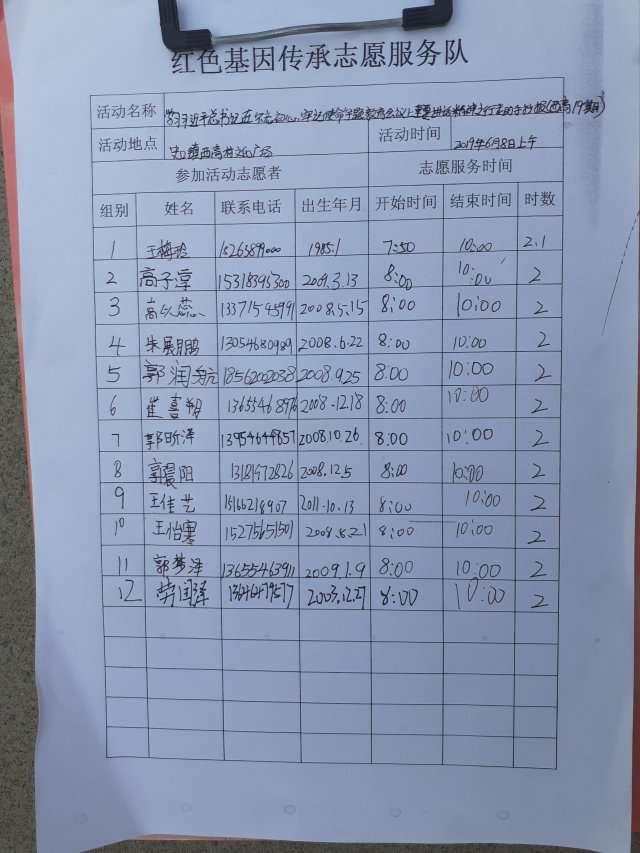 红色基因传承志愿服务队
活动名称 习近平总书记在 初心 使命 主题教育会议上重要讲话
活动地点 镇西高村文化广场 活动时间 2019年6月8日上午
参加活动志愿者 志愿服务时间
组别 姓名 联系电话 出生年月 开始时间 结束时间 时数
1 王梅玲 1985.1 7:50 10:00 2.1
2 高子淳 15318395300 2009.3.13 8:00 10:00 2
3 高 蕊 13371545991 2008.5.15 8:00 10:00 2
4 朱晨鹏 13054680909 2008.6.22 8:00 10:00 2
5 郭润航 1856202038 2008.9.25 8:00 10:00 2
6 崔喜翔 13655468976 2008.12.18 8:00 10:00 2
7 郭昕泽 13954649857 2008.10.26 8:00 10:00 2
8 郭晨阳 13181972826 2008.12.5 8:00 10:00 2
9 王佳艺 2011.10.13 8:00 10:00 2
10 王怡 15275651501 2008.8.21 8:00 10:00 2
11 郭梦泽 13655463911 2009.1.9 8:00 10:00 2
12 国泽 13646479577 2003.12.27 8:00 10:00 2